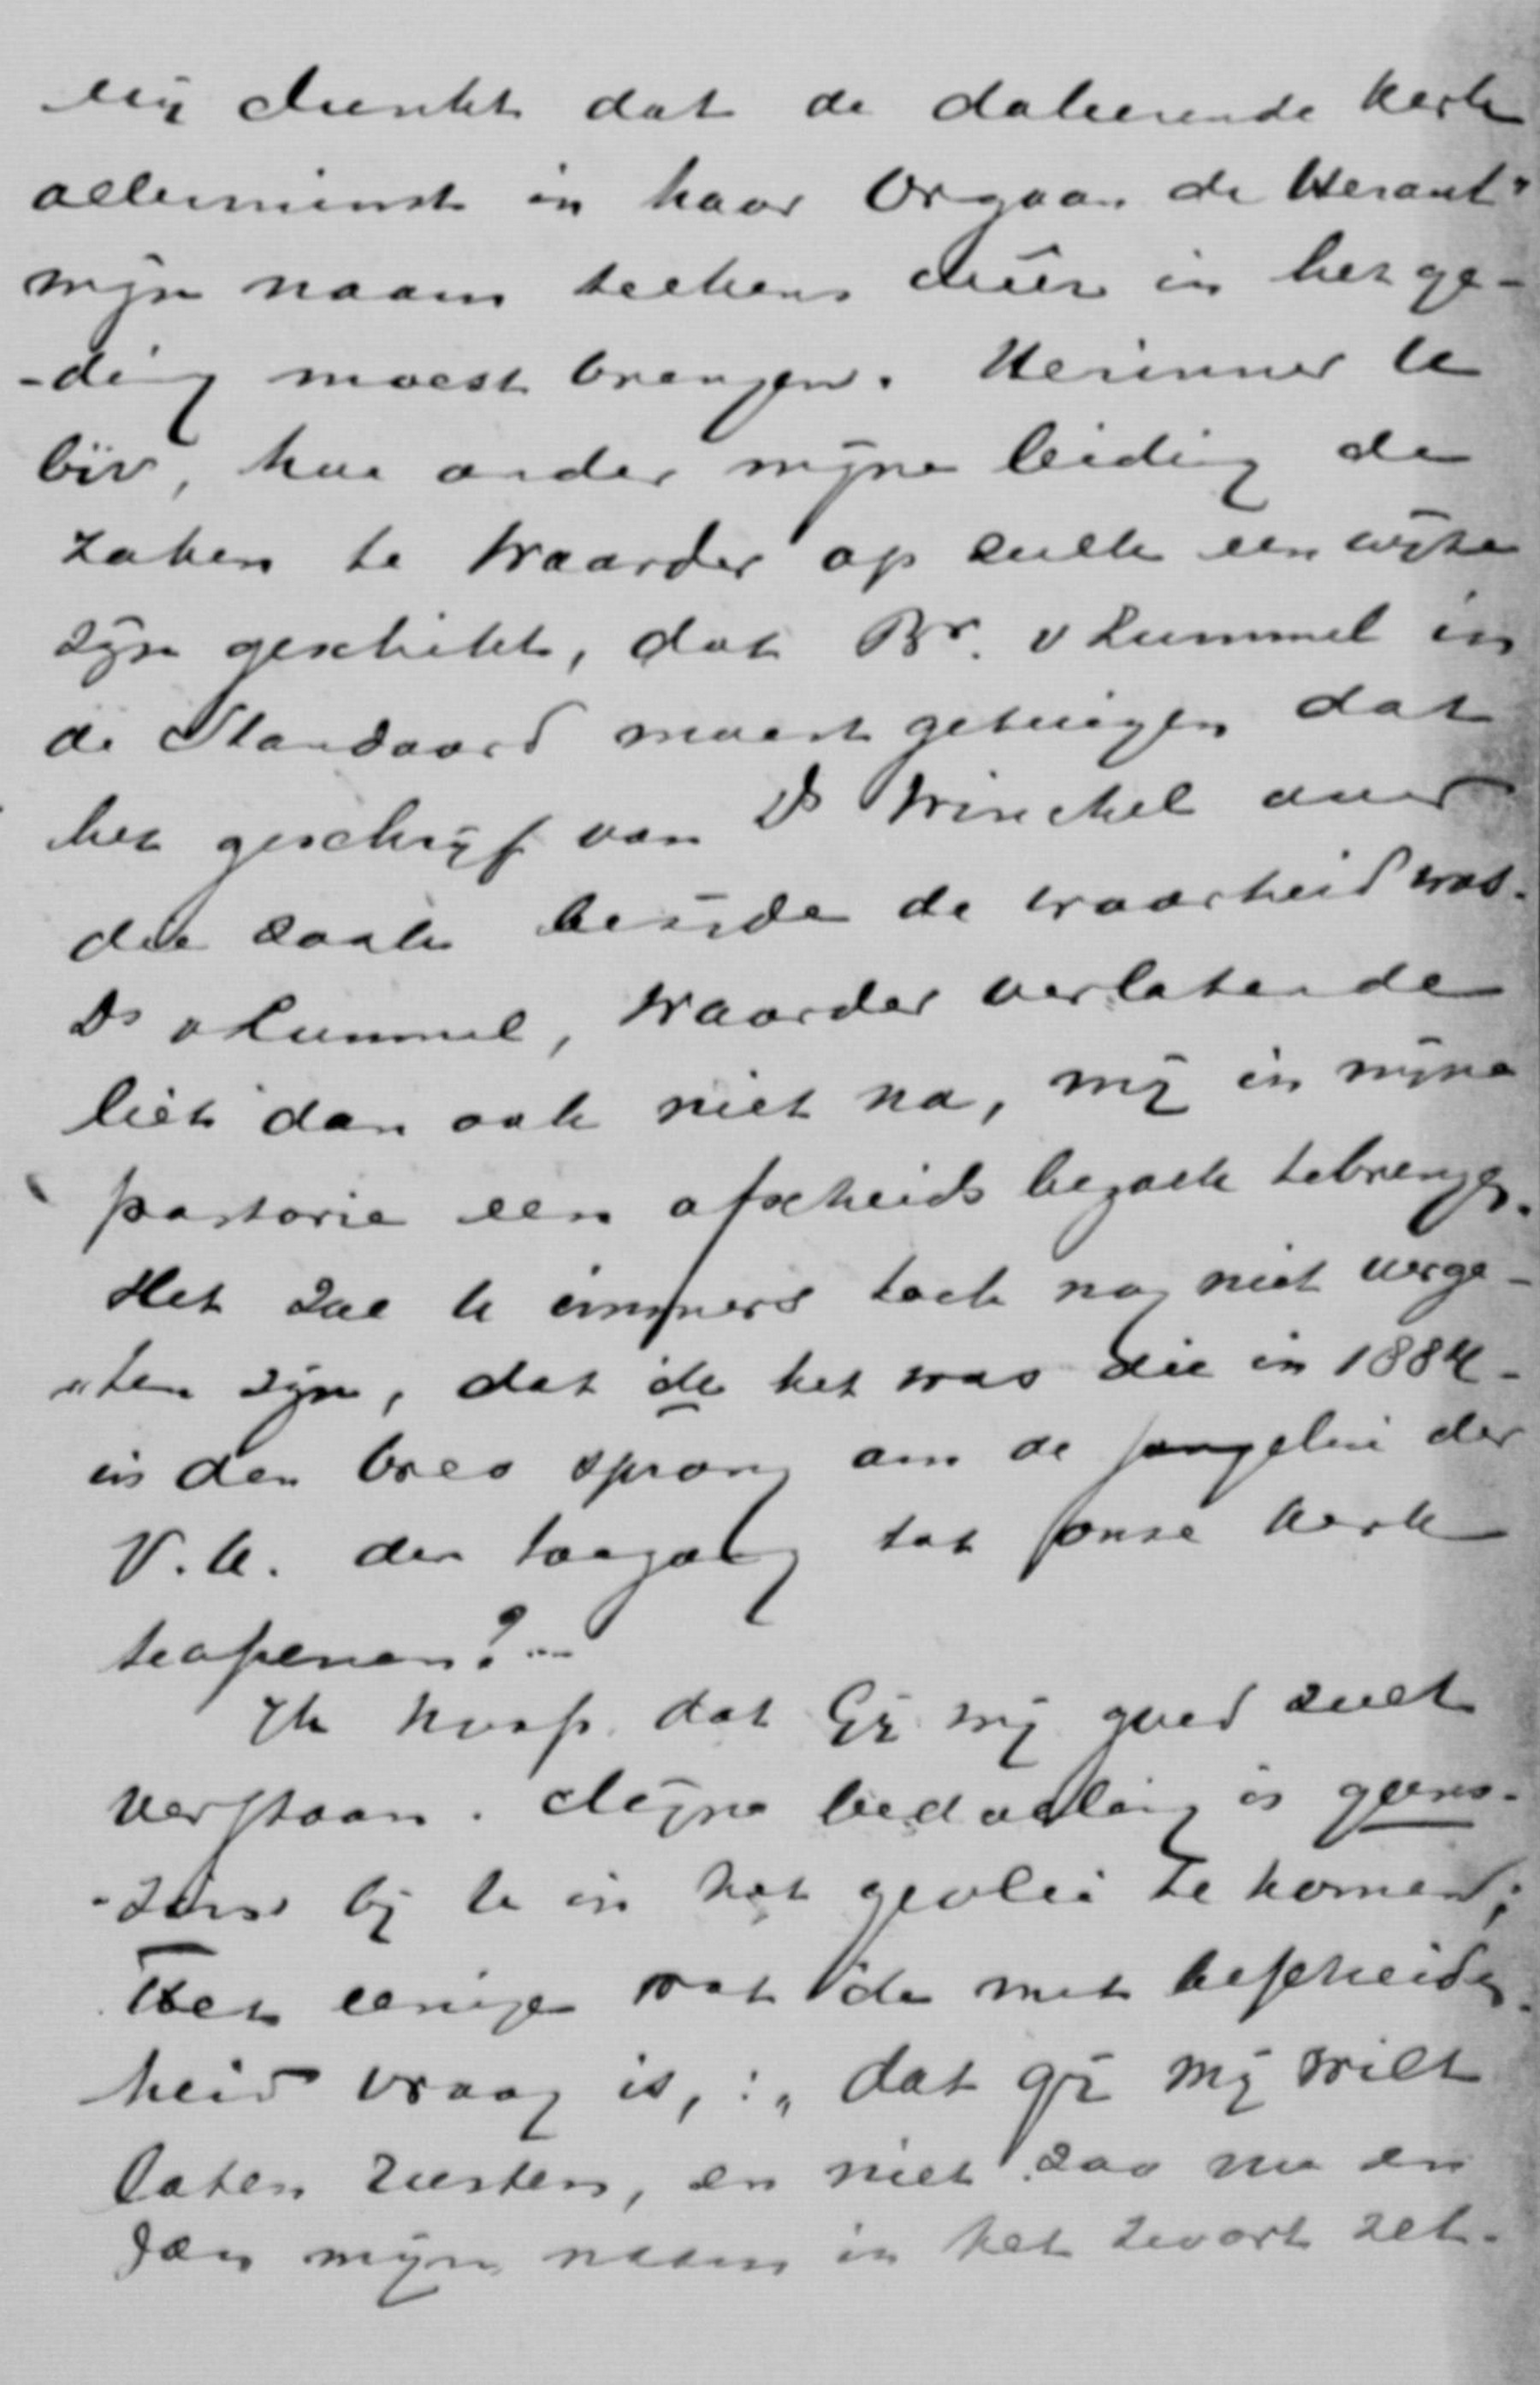 mij dunkt dat de doleerende kerk
allerminst in haar Orgaan de Heraut"
mijn naam telkens in het ge-
-ding moest brengen. Herinner U
bijv, hoe onder mijne leiding de
zaken te Waarder op zulk een wijze
zijn geschikt, dat Br. v Lummel in
de Standaard moest getuigen dat
het geschrijf van Ds Winckel over
die zaak bezijde de waarheid was.
Ds v Lummel, Waarder verlatende
liet dan ook niet na, mij in mijne
pastorie een afscheids bezoek tebrengen.
Het zal U immers toch nog niet verge-
-ten zijn, dat ik het was die in 1884
in den bres sprong om de jongelui der
V.U. den toegang tot onze kerk
teopenen?...
Ik hoop dat Gij mij goed zult
verstaan. Mijne bedoeling is geens-
-zins bij U in het gevlei te komen;
Het eenige wat ik met bescheiden
heid vraag is, : „ dat gij mij wilt
laten rusten, en niet zoo nu en
dan mijn naam in het zwart zet-